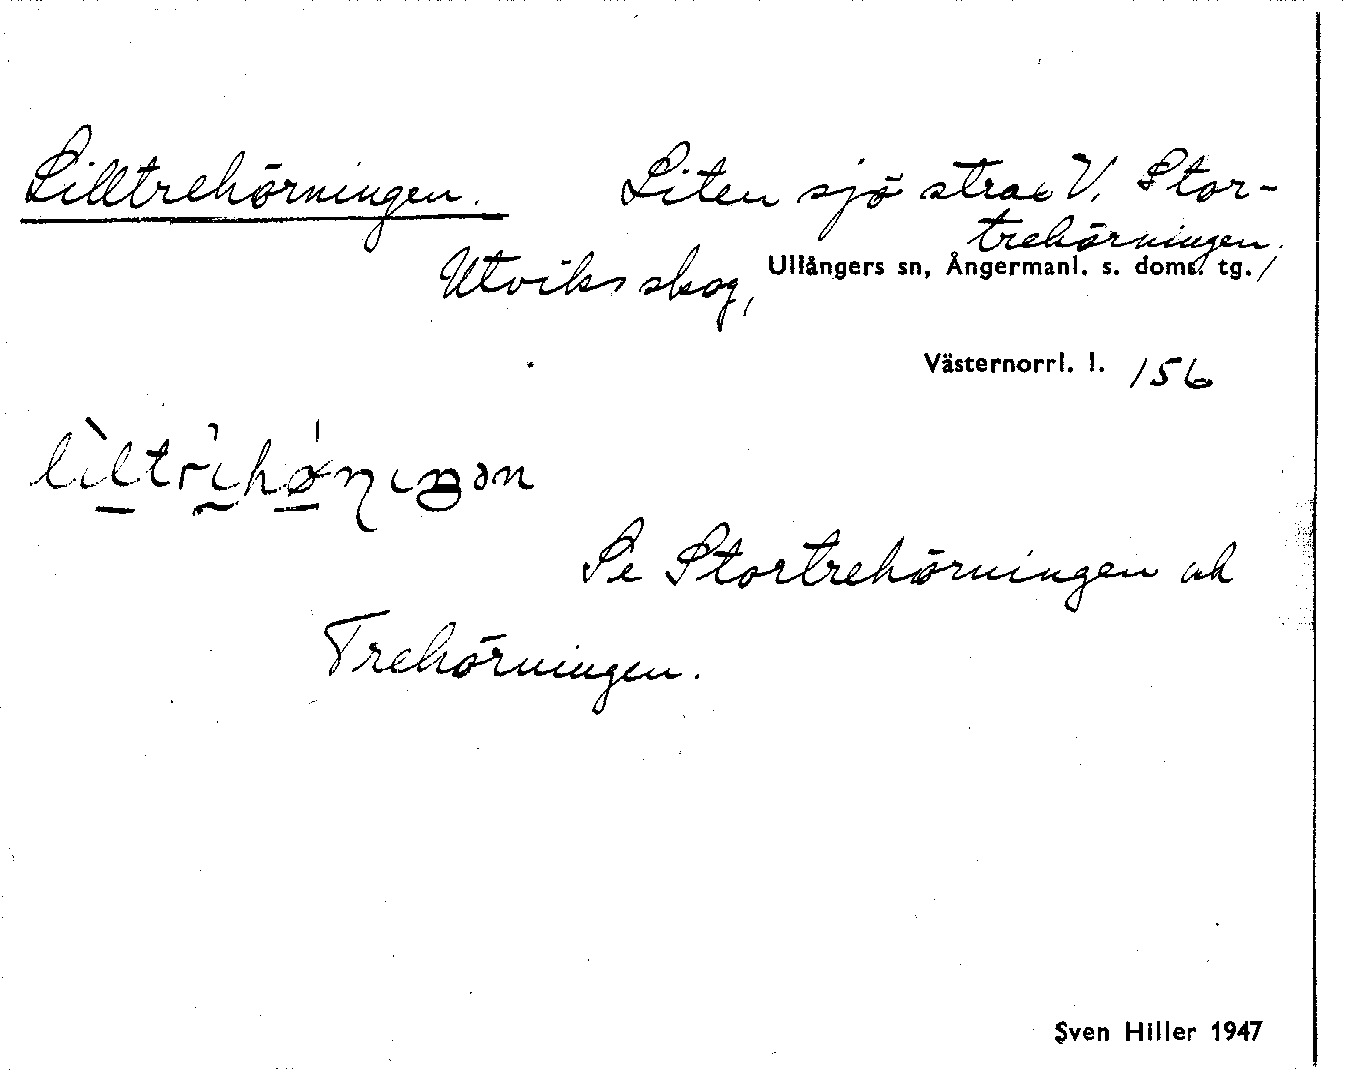 Lilltrehörningen. Liten sjö strax V. Stor-
trehörningen.
Utviks skog, Ullångers sn, Ångermanl. s. doms. tg. /
Västernorrl. l. 156
Se Stortrehörningen och
Trehörningen.
Sven Hiller 1947